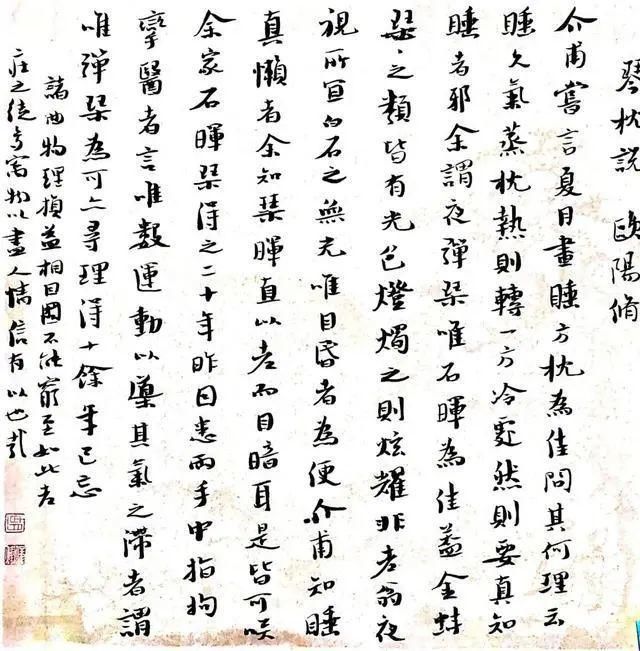 琴枕說 歐陽脩
介甫嘗言夏月晝睡方枕為佳問其何理云
睡久氣蒸枕熱則轉一方冷處然則要真知
睡者邪余謂夜彈琹唯石暉為佳蓋金蚌
琹、之類皆有光色燈燭之則炫耀非老翁夜
視所宜白石之無光唯目昏者為便介甫知睡
真懶者余知琹暉直以老而目暗耳是皆可咲
余家石暉琹得之二十年昨因患兩手中指拘
攣醫者言唯數運動以導其氣之滯者謂
唯彈琹為可亦尋理得十餘年已忘
諸曲物理損益相因固不能窮至如此老
莊之徒多寓物以盡人情信有以也哉